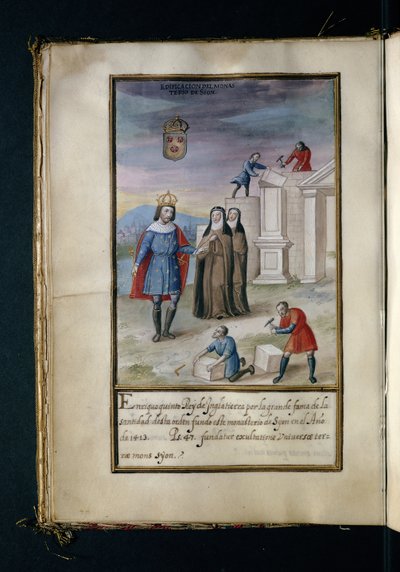 EDIFICACION DEL MONAS
TERIO DE SYON.
Enrique quinto Rey de Inglatierra por la grande fama de la
santidad desta orden fundo este monasterio de Syon en el Año
de 1413. Ps. 47. fundatur exultatione Universæ ter-
ræ mons syon.